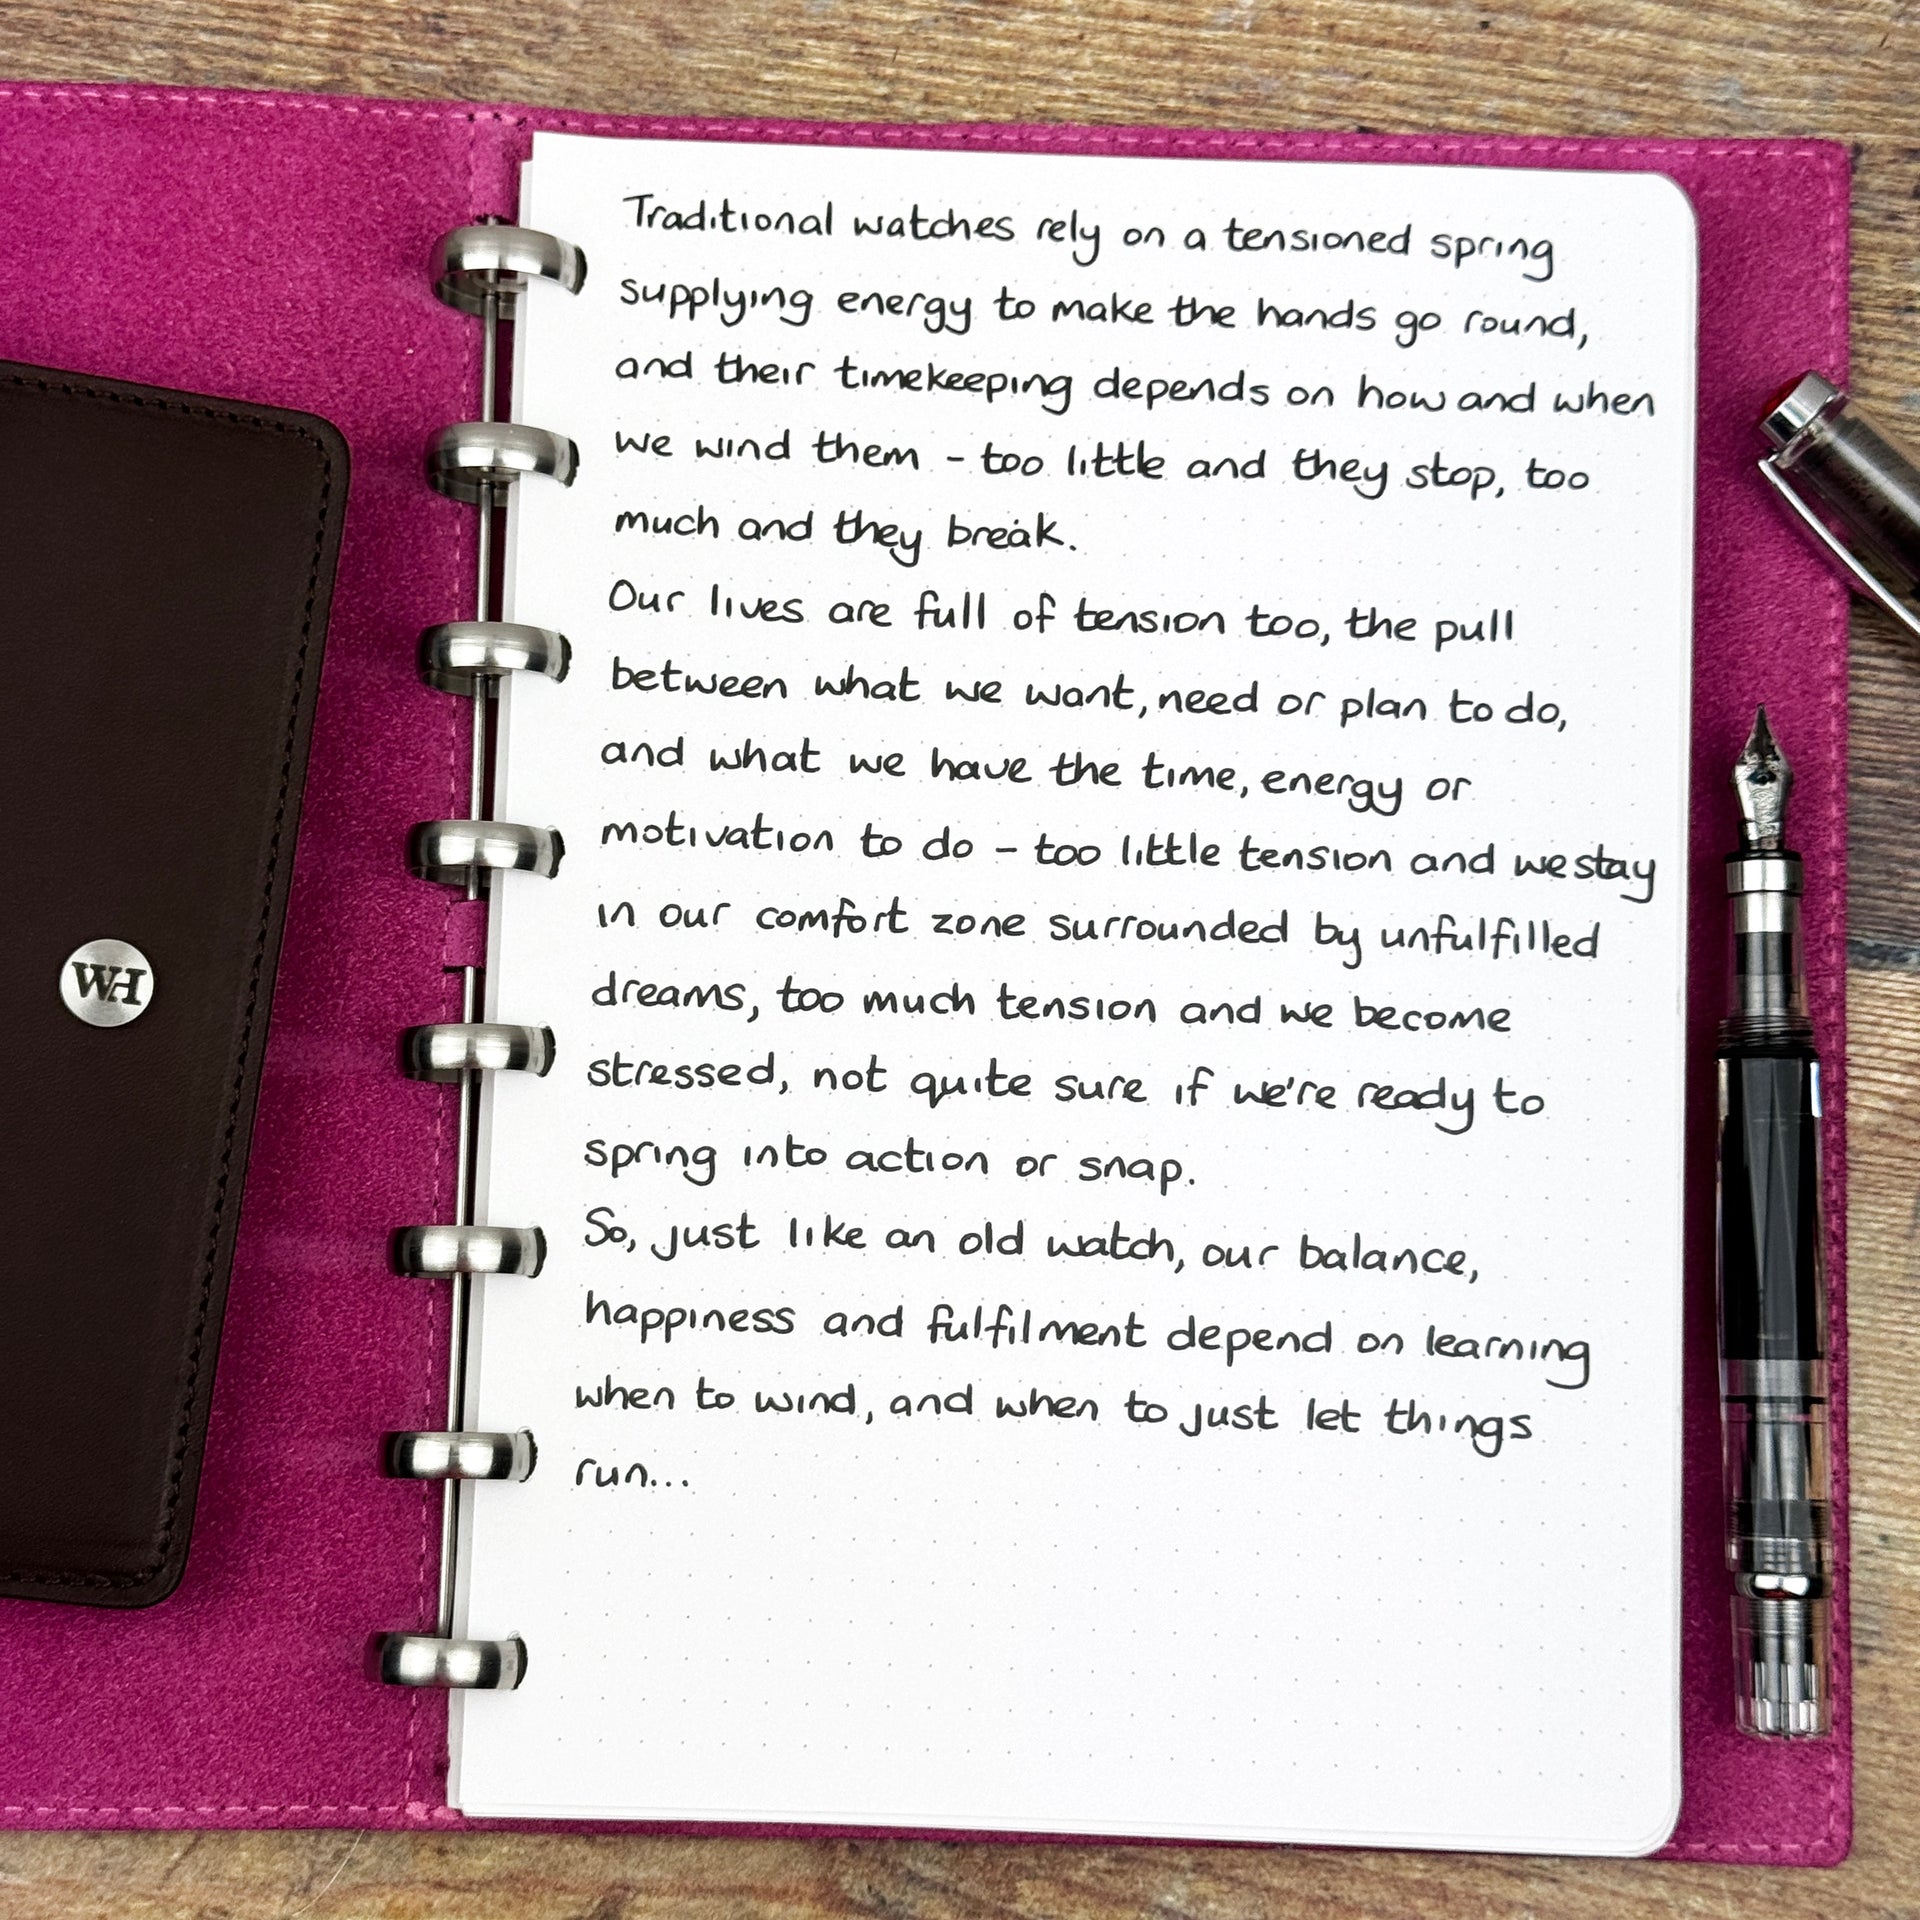 WH
Traditional watches rely on a tensioned spring
supplying energy to make the hands go round,
and their timekeeping depends on how and when
we wind them - too little and they stop, too
much and they break.
Our lives are full of tension too, the pull
between what we want, need or plan to do,
and what we have the time, energy or
motivation to do - too little tension and we stay
in our comfort zone surrounded by unfulfilled
dreams, too much tension and we become
stressed, not quite sure if we're ready to
spring into action or snap.
So, just like an old watch, our balance,
happiness and fulfilment depend on learning
when to wind, and when to just let things
run...